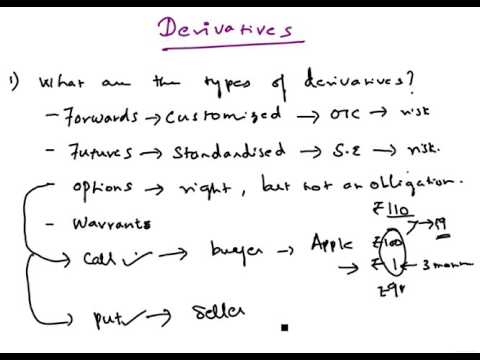 Derivatives
1) What are the types of derivatives?
- Forwards → Customized → OTC → risk
- Futures → Standardised → S.E → risk.
- Options → right, but not an obligation.
₹110
- Warrants
→ 19
Call ✓ → buyer → Apple ₹100
→ ₹ 1 ← 3 months
₹98
put ✓ → Seller